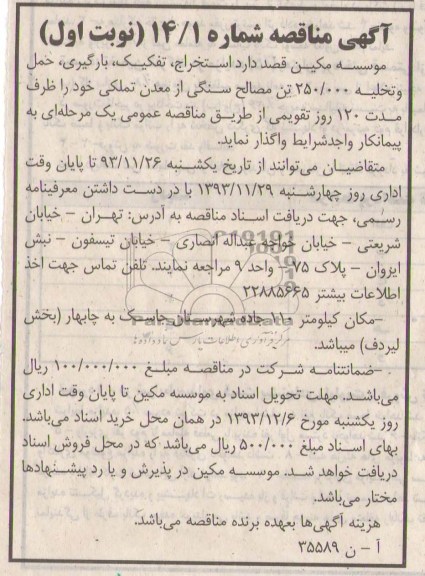 آگهی مناقصه شماره ۱۴/۱ (نوبت اول)
موسسه مکین قصد دارد استخراج، تفکیک، بارگیری، حمل
وتخلیه ۲۵۰/۰۰۰ تن مصالح سنگی از معدن تملکی خود را ظرف
مدت ۱۲۰ روز تقویمی از طریق مناقصه عمومی یک مرحله‌ای به
پیمانکار واجدشرایط واگذار نماید.
متقاضیان می‌توانند از تاریخ یکشنبه ۹۳/۱۱/۲۶ تا پایان وقت
اداری روز چهارشنبه ۱۳۹۳/۱۱/۲۹ با در دست داشتن معرفینامه
رسمی، جهت دریافت اسناد مناقصه به آدرس: تهران – خیابان
شریعتی – خیابان خواجه عبداله انصاری – خیابان تیسفون – نبش
ایزوان – پلاک ۷۵ – واحد ۹ مراجعه نمایند. تلفن تماس جهت اخذ
اطلاعات بیشتر ۲۲۸۸۵۶۶۵
–مکان کیلومتر ۱۱۰ جاده شهرستان جاسک به چابهار (بخش
لیردف) میباشد.
–ضمانتنامه شرکت در مناقصه مبلغ ۱۰۰/۰۰۰/۰۰۰ ریال
می‌باشد. مهلت تحویل اسناد به موسسه مکین تا پایان وقت اداری
روز یکشنبه مورخ ۱۳۹۳/۱۲/۶ در همان محل خرید اسناد می‌باشد.
بهای اسناد مبلغ ۵۰۰/۰۰۰ ریال می‌باشد که در محل فروش اسناد
دریافت خواهد شد. موسسه مکین در پذیرش و یا رد پیشنهادها
مختار می‌باشد.
هزینه آگهی‌ها بعهده برنده مناقصه می‌باشد.
آ – ن ۳۵۵۸۹